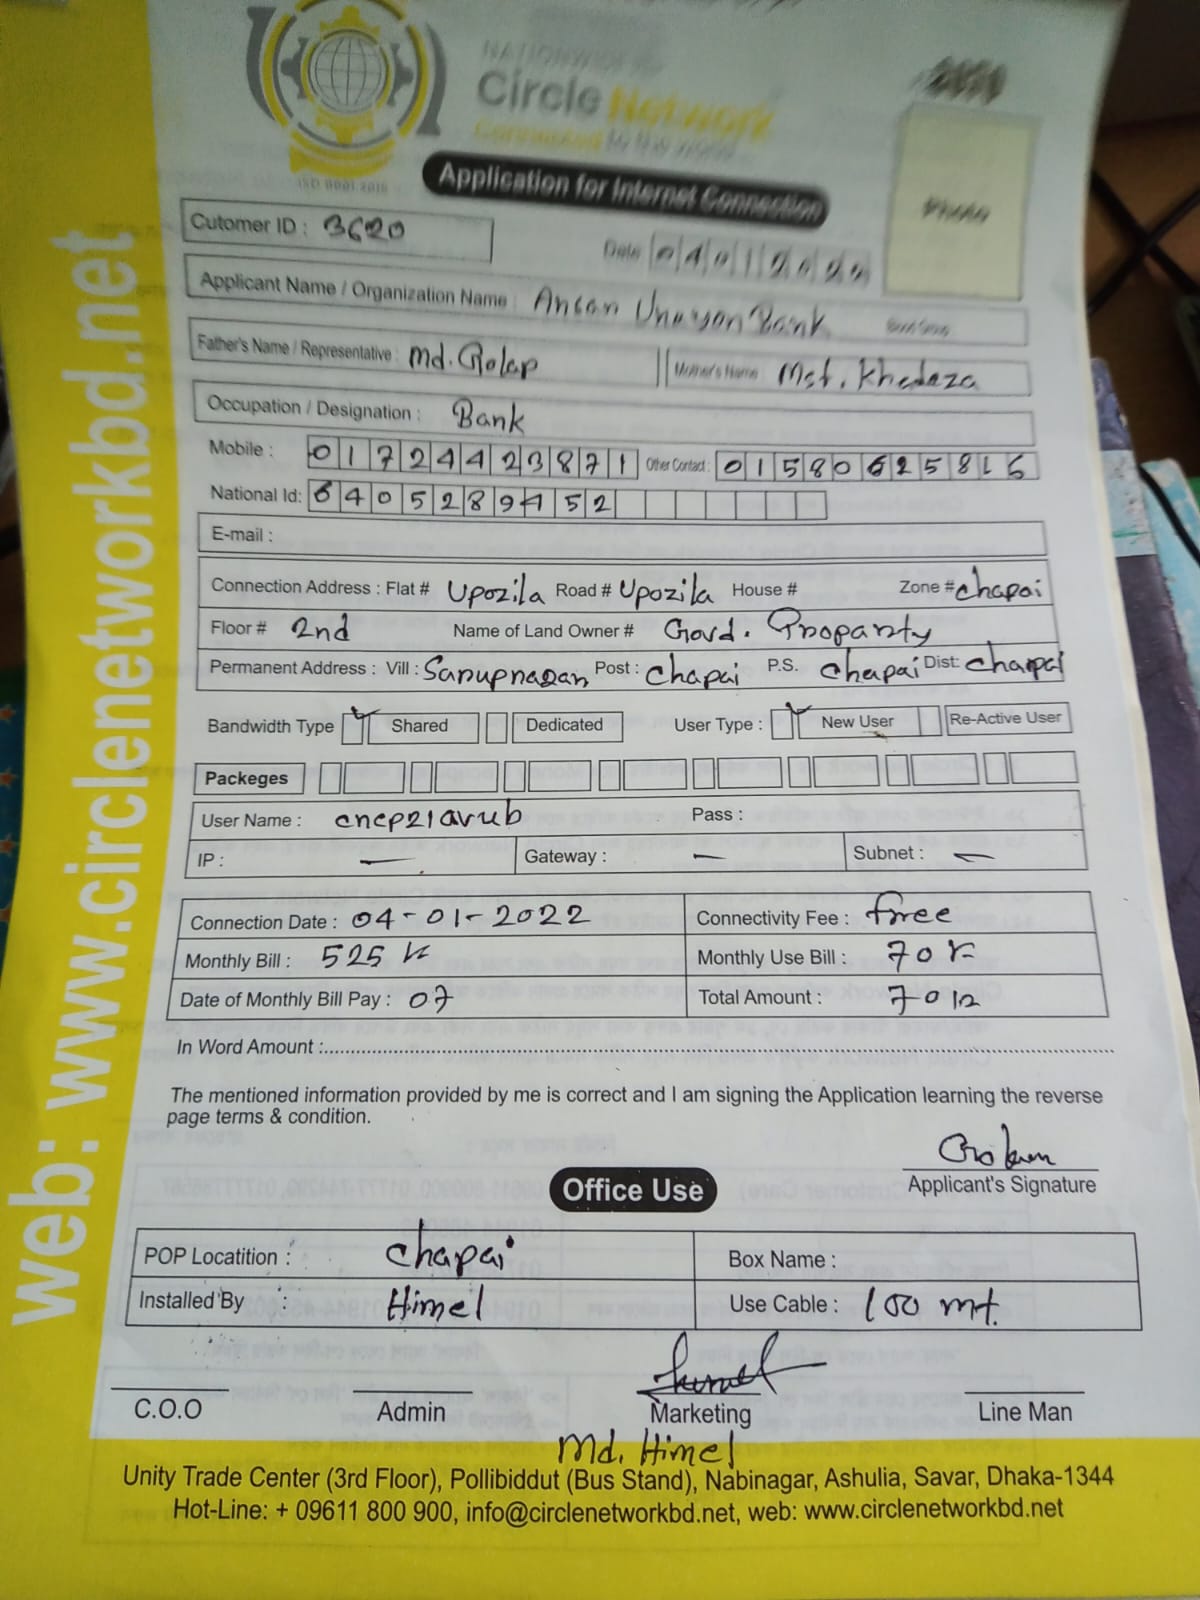 web: www.circlenetworkbd.net
NATIONWIDE
Circle Network
Connected to the world
ISO 9001:2015
Application for Internet Connection
Photo
Cutomer ID : 3620
Date 04012022
Applicant Name / Organization Name : Ansan Unnyon Bank
Father's Name / Representative : Md. Golap Mother's Name Mst. Khedeza
Occupation / Designation : Bank
Mobile : 01724423871 Other Contact : 01580625816
National Id: 6405289452
E-mail :
Connection Address : Flat # Upozila Road # Upozila House # Zone # Chapai
Floor # 2nd Name of Land Owner # Govd. Proparty
Permanent Address : Vill : Sarupnagar Post : Chapai P.S. Chapai Dist: Chapai
Bandwidth Type Shared Dedicated User Type : New User Re-Active User
Packeges
User Name : cncp21avub Pass :
IP : — Gateway : — Subnet : —
Connection Date : 04-01-2022 Connectivity Fee : free
Monthly Bill : 525 Monthly Use Bill : 70
Date of Monthly Bill Pay : 07 Total Amount : 70
In Word Amount :
The mentioned information provided by me is correct and I am signing the Application learning the reverse
page terms & condition.
Applicant's Signature
Office Use
POP Locatition : Chapai Box Name :
Installed By : Himel Use Cable : 100 mt.
C.O.O Admin Marketing Line Man
Md. Himel
Unity Trade Center (3rd Floor), Pollibiddut (Bus Stand), Nabinagar, Ashulia, Savar, Dhaka-1344
Hot-Line: + 09611 800 900, info@circlenetworkbd.net, web: www.circlenetworkbd.net